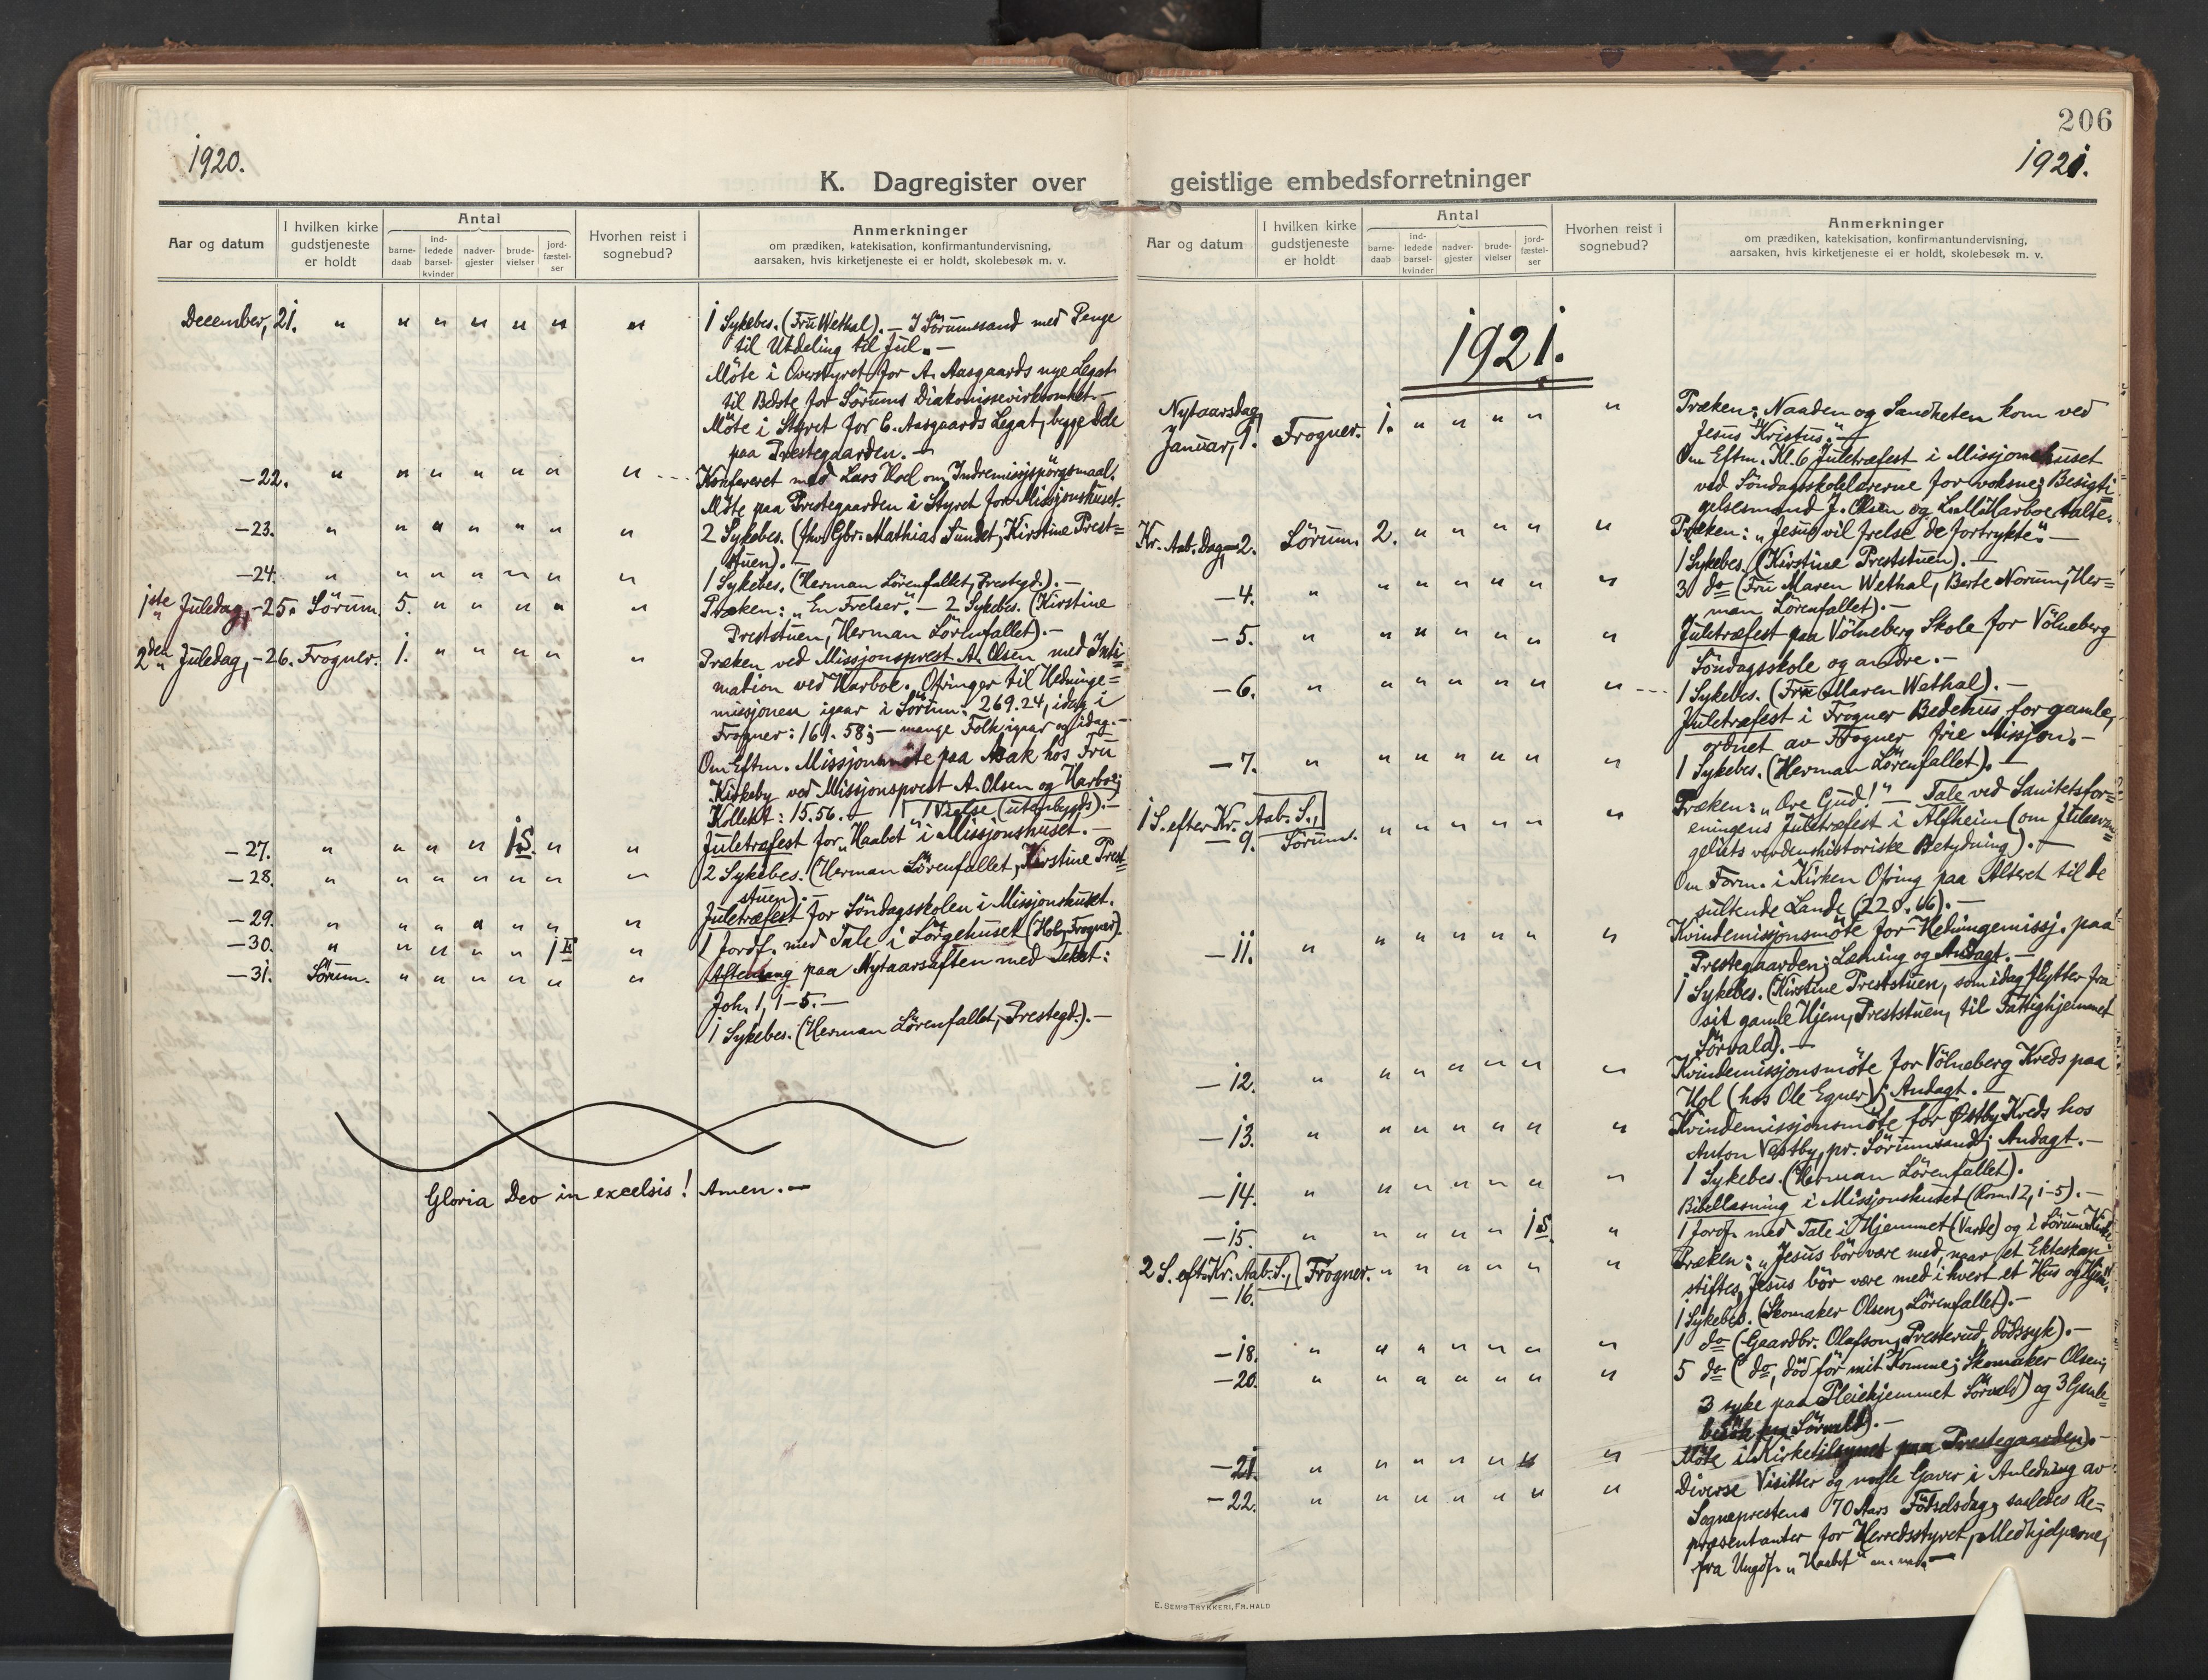 1920.
K. Dagregister over
Aar og datum
I hvilken kirke
gudstjeneste
er holdt
Antal
barne-
daab
ind-
ledede
barsel-
kvinder
nadver-
gjester
brude-
vielser
jord-
fæstel-
ser
Hvorhen reist i
sognebud?
Anmerkninger
om prædiken, katekisation, konfirmantundervisning,
aarsaken, hvis kirketjeneste ei er holdt, skolebesøk m. v.
December, 21. " " " " " " " 1 Sykebes. (Fru Wethal). — I Sørumsand med Penge
til Utdeling til Jul. —
Møte i Overstyret for A. Aasgaards nye Legat
til Bedste for Sørums Diakonissevirksomhet. —
Møte i Styret for C. Aasgaards Legat, begge Dele
paa Prestegaarden. —
— 22. " " " " " " " Konfereret med Lars Hol om Indremissjspørgsmaal.
Møte paa Prestegaarden i Styret for Missjonshuset.
— 23. " " " " " " " 2 Sykebes. (fhv. Gbr. Mathias Sundet, Kirstine Prest=
stuen). —
— 24. " " " " " " " 1 Sykebes. (Herman Lörenfallet, Prestegd.). —
1ste Juledag, — 25. Sörum. 5. " " " " " Præken: „En Frelser." — 2 Sykebes. (Kirstine
Preststuen, Herman Lörenfallet). —
2den Juledag, — 26. Frogner. 1. " " " " " Præken ved Missjonsprest A. Olsen med Inti=
mation ved Harboe. Ofringer til Hedninge=
missjonen igaar i Sörum: 269.24, idag i
Frogner: 161.58; — mange Folk igaar og idag. —
Om Eftm. Missjonsmöte paa Asak hos Fru
Kirkeby ved Missjonsprest A. Olsen og Harboe;
Kollekt: 15.56. — 1 Vielse (utenbygds). —
— 27. " " " " 1 S. " " Juletræfest for „Haabet" i Missjonshuset. —
— 28. " " " " " " " 2 Sykebes. (Herman Lörenfallet, Kirstine Prest=
stuen). —
— 29. " " " " " " " Juletræfest for Söndagsskolen i Missjonshuset.
— 30. " " " " " 1 " 1 Jordf. med Tale i Sörgehuset (Hol, Frogner).
— 31. Sörum. " " " " " " Aftensang paa Nytaarsaften med Tekst:
Joh. 1, 1–5. —
1 Sykebes. (Herman Lörenfallet, Prestegd.). —
Gloria Deo in excelsis! Amen. —
206
1921.
geistlige embedsforretninger
Aar og datum
I hvilken kirke
gudstjeneste
er holdt
Antal
barne-
daab
ind-
ledede
barsel-
kvinder
nadver-
gjester
brude-
vielser
jord-
fæstel-
ser
Hvorhen reist i
sognebud?
Anmerkninger
om prædiken, katekisation, konfirmantundervisning,
aarsaken, hvis kirketjeneste ei er holdt, skolebesøk m. v.
1921.
Nytaarsdag,
Januar, 1. Frogner. 1. " " " " " Præken: Naaden og Sandheten kom ved
Jesus Kristus." —
Om Eftm. Kl. 6 Juletræfest i Missjonshuset
ved Söndagsskolelærerne for voksne; Besigti=
gelsesmand J. Olsen og Harboe talte.
Kr. Aab. Dag, — 2. Sörum. 2. " " " " " Præken: „Jesus vil frelse de fortrykte." —
1 Sykebes. (Kirstine Preststuen). —
— 4. " " " " " " " 3 do (Fru Maren Wethal, Berte Norum, Her=
man Lörenfallet). —
— 5. " " " " " " " Juletræfest paa Völneberg Skole for Völneberg
Söndagsskole og andre. —
— 6. " " " " " " " 1 Sykebes. (Fru Maren Wethal). —
Juletræfest i Frogner Bedehus for gamle,
ordnet av Frogner frie Missjon. —
— 7. " " " " " " " 1 Sykebes. (Herman Lörenfallet). —
1 S. efter Kr. Aab. S.,
— 9. Sörum. " " " " " " Præken: „Ære Gud!" — Tale ved Sanitetsfor=
eningens Juletræfest i Alfheim (om Juleevan=
geliets verdenshistoriske Betydning). —
Om Form. i Kirken Ofring paa Alteret til de
sultende Lande (220.66). —
— 11. " " " " " " " Kvindemissjonsmöte for Hedningemissj. paa
Prestegaarden; Læsning og Andagt. —
1 Sykebes. (Kirstine Preststuen, som idag flytter fra
sit gamle Hjem, Preststuen, til Fattighjemmet
Sörvald). —
— 12. " " " " " " " Kvindemissjonsmöte for Völneberg Kreds paa
Hol (hos Ole Egner); Andagt. —
— 13. " " " " " " " Kvindemissjonsmöte for Østby Kreds hos
Anton Vestby, pr. Sörumsand; Andagt. —
1 Sykebes. (Herman Lörenfallet).
— 14. " " " " " " " Bibellæsning i Missjonshuset (Rom. 12, 1–5). —
— 15. " " " " " 1 S. " 1 Jordf. med Tale i Hjemmet (Varde) og i Sörum Kirke.
2 S. eft. Kr. Aab. S.,
— 16. Frogner. " " " " " " Præken: „Jesus bör være med, naar et Ekteskap
stiftes, Jesus bör være med i hvert et Hus og Hjem."
1 Sykebes. (Skomaker Olsen, Lörenfallet). —
— 18. " " " " " " " 1 do (Gaardbr. Olafson, Presterud, dödssyk). —
— 20. " " " " " " " 5 do (do, död för mit Komme; Skomaker Olsen;
3 syke paa Pleiehjemmet Sörvald) og 3 Gamle=
besök paa Sörvald). —
— 21. " " " " " " " Möte i Kirketilsynet paa Prestegaarden). —
— 22. " " " " " " " Diverse Visitter og nogle Gaver i Anledning av
Sogneprestens 70 Aars Födselsdag, saaledes Re=
præsentanter for Herredsstyret, Medhjelperne,
fra Ungdf. „Haabet"
E. SEM'S TRYKKERI, FR.HALD